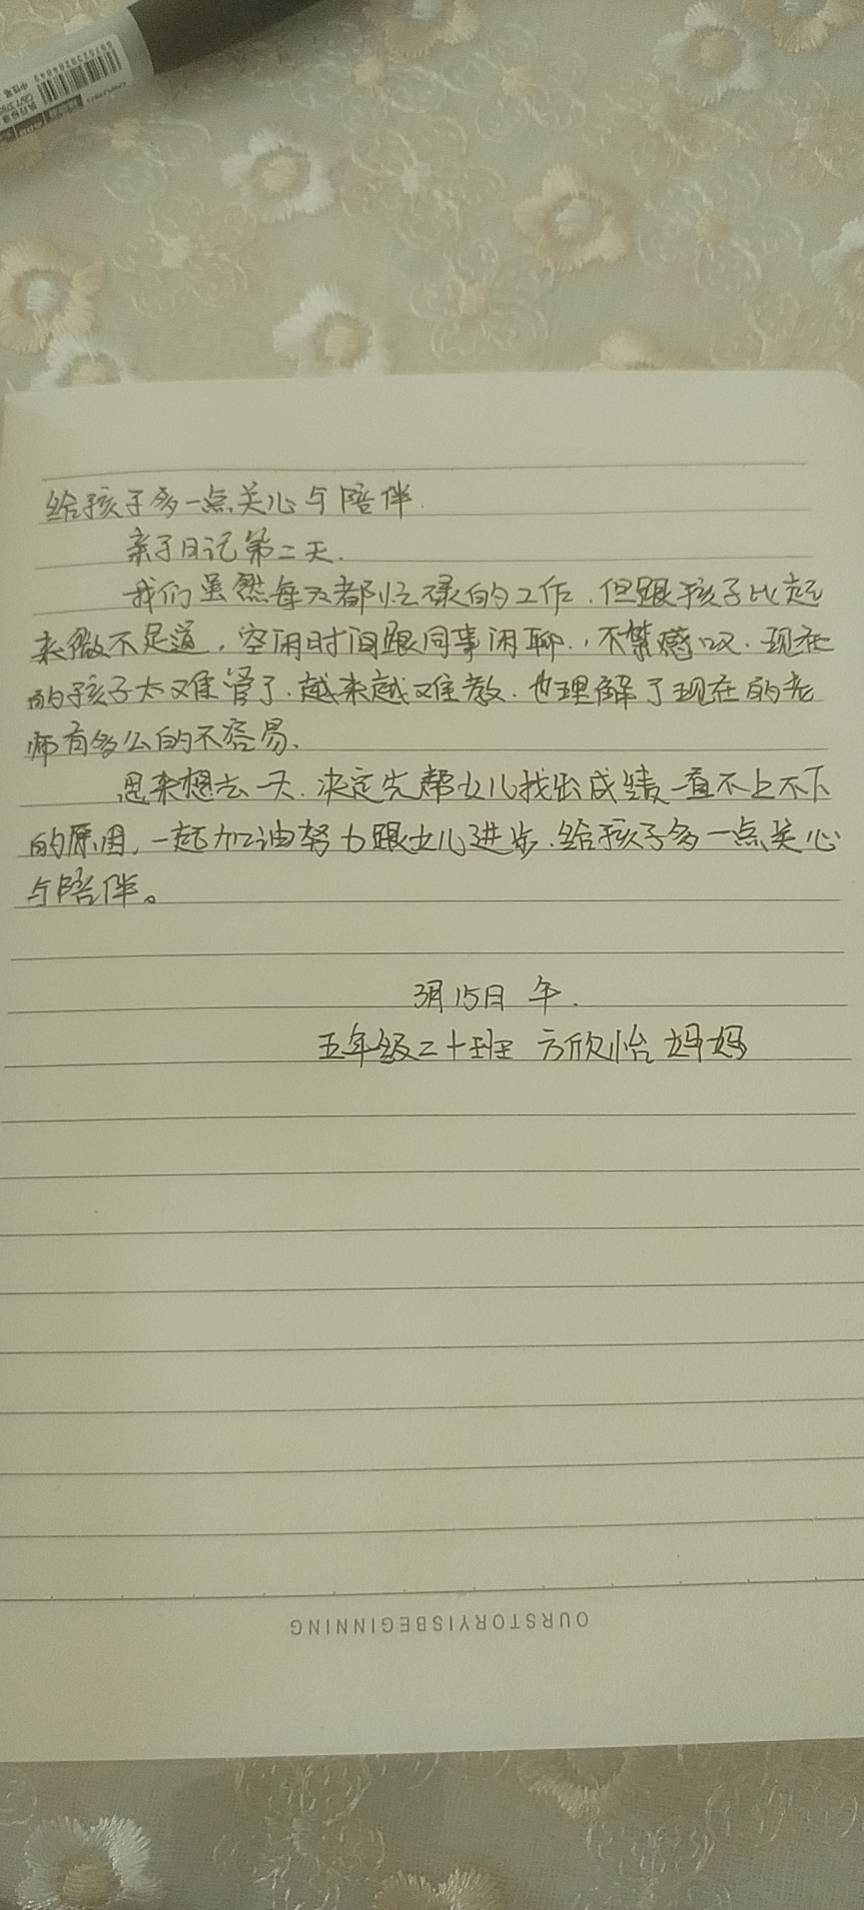 给孩子多一点关心与陪伴.
亲子日记第二天.
我们虽然每天都忙碌的工作.但跟孩子比起
来微不足道，空闲时间跟同事闲聊.，不禁感叹.现在
的孩子太难管了.越来越难教.也理解了现在的老
师有多么的不容易.
思来想去一天.决定先帮女儿找出成绩一直不上不下
的原因,一起加油努力跟女儿进步.给孩子多一点关心
与陪伴。
3月15日 午.
五年级二十班 方欣怡妈妈
OURSTORYISBEGINNING